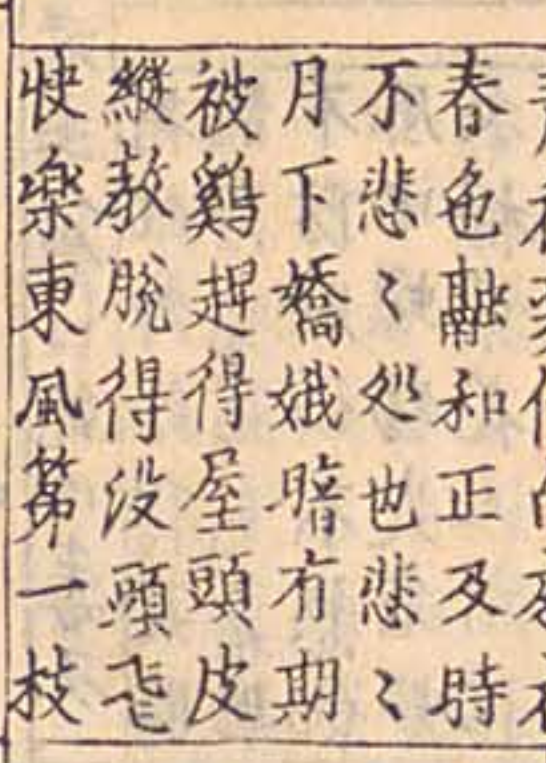 春色融和正及時
不悲〻処也悲〻
月下嬌娥暗有期
被鷄趕得屋頭皮
縱教脫得没頭飛
快楽東風第一枝